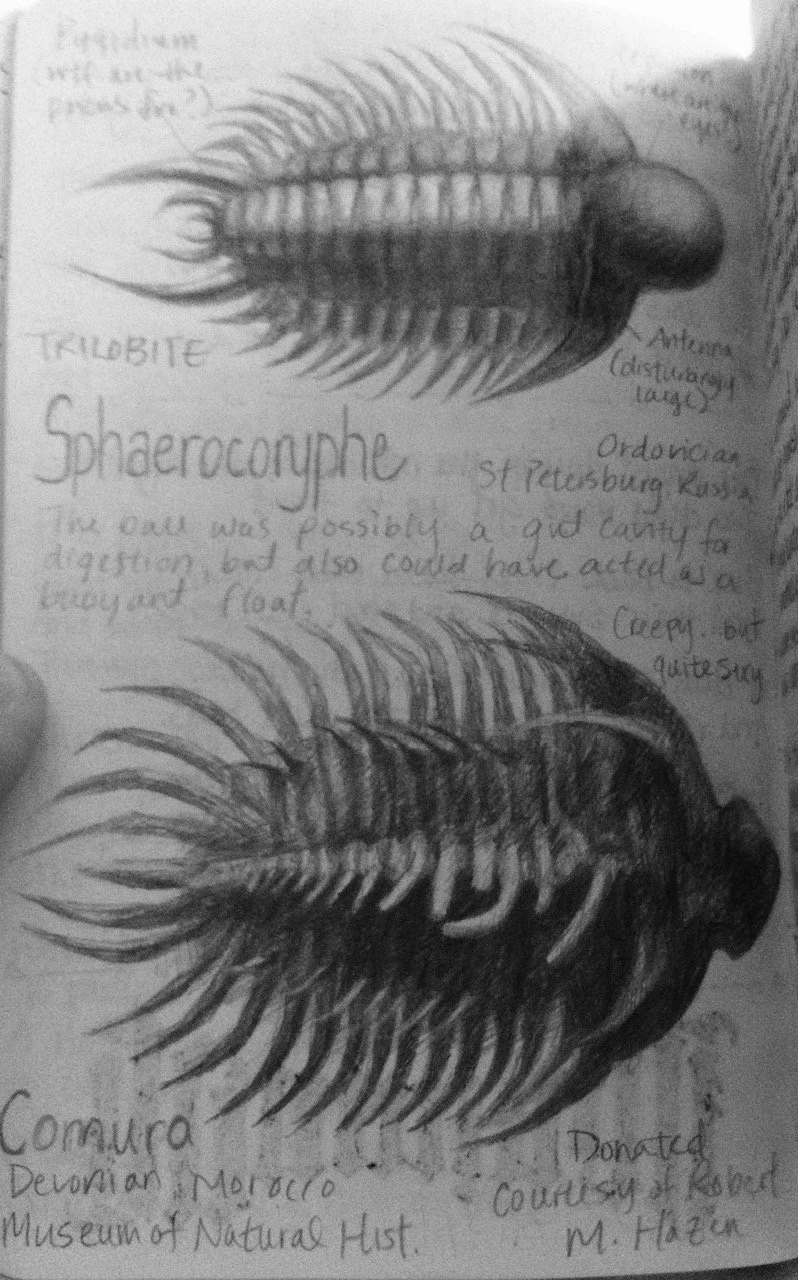 Pygidium
(wtf are the
prongs for?)
(where are the
eyes?)
TRILOBITE
Antenna
(disturbingly
large)
Sphaerocoryphe
Ordovician
St Petersburg, Russia
The ball was possibly a gut cavity for
digestion, but also could have acted as a
buoyant float.
Creepy but
quite sexy
Comura
Devonian, Morocco
Museum of Natural Hist.
Donated
Courtisy of Robert
M. Hazen